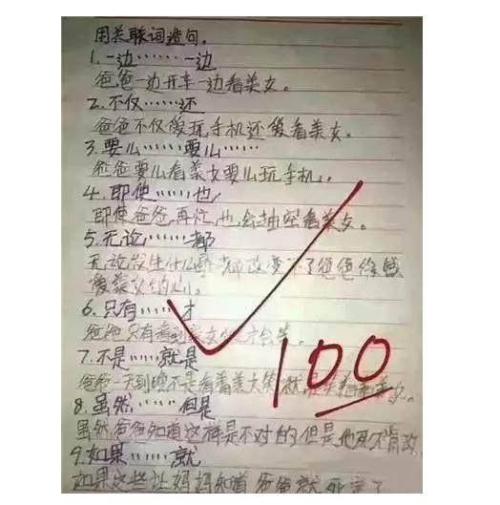 用关联词造句。
1.一边……一边
爸爸一边开车一边看美女。
2.不仅……还
爸爸不仅爱玩手机还爱看美女。
3.要么……要么……
爸爸要么看美女要么玩手机。
4.即使……也
即使爸爸再忙,也会抽空看美女。
5.无论……都
无论发生什么都改变不了爸爸
美女的心。
6.只有……才
爸爸只有看到美女他才会笑。
7.不是……就是
爸爸一天到晚不是看着美女笑就是
8.虽然……但是
虽然爸爸知道这样是不对的但是他死不肯改
9.如果……就
如果这些让妈妈知道爸爸就死定了
100